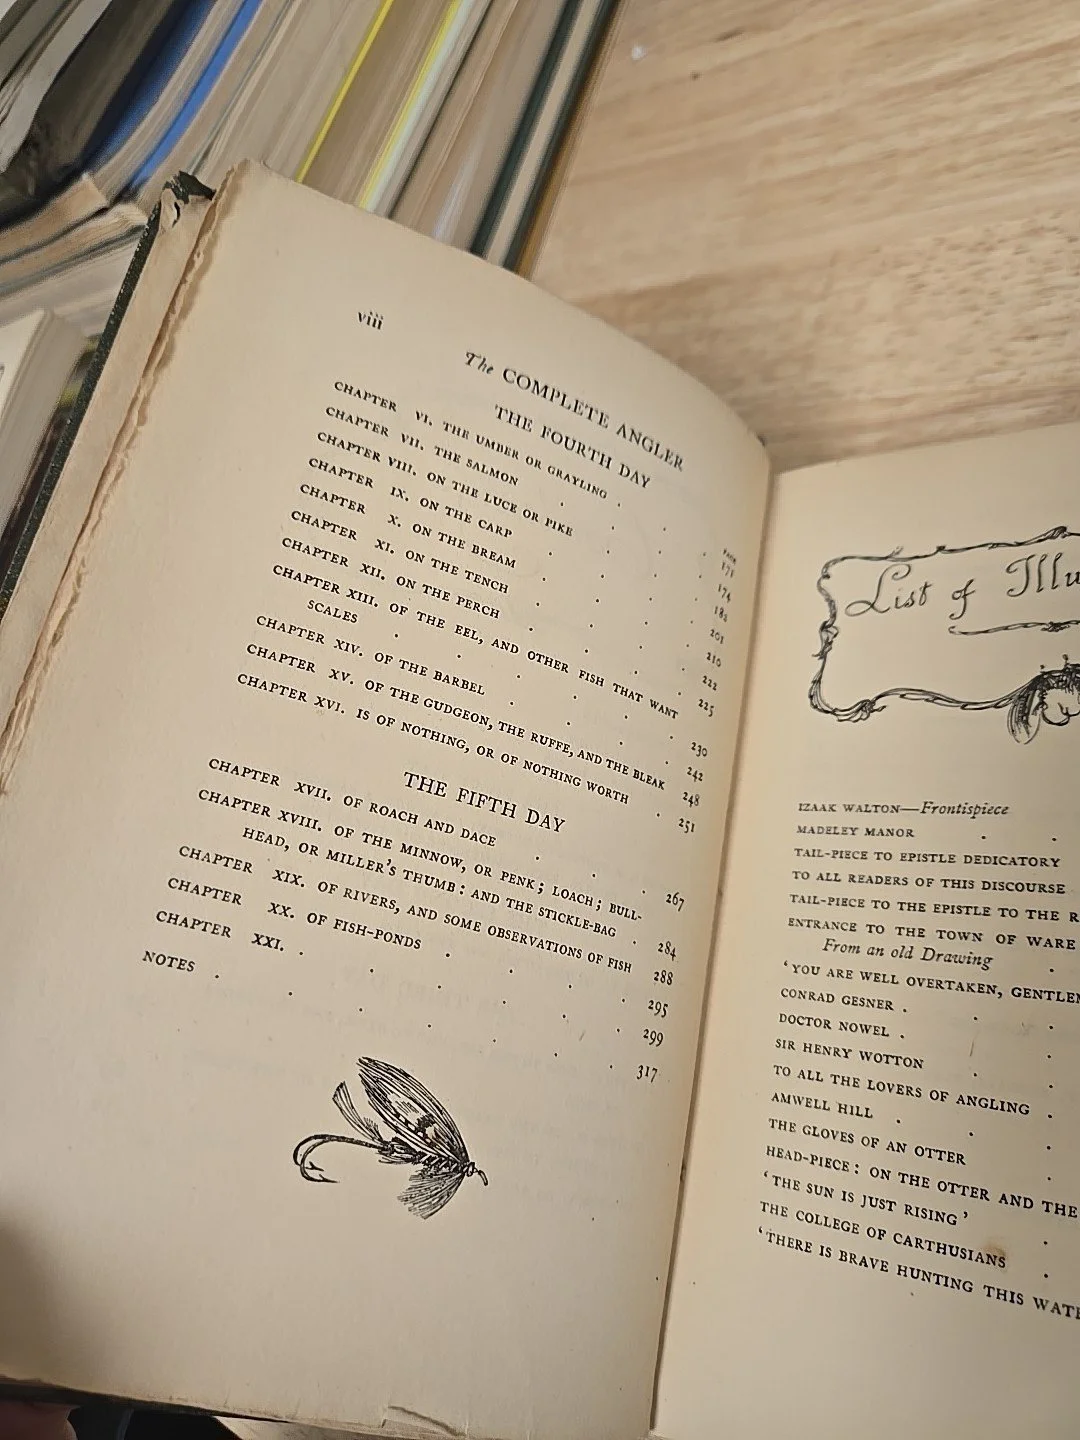 viii
The COMPLETE ANGLER
THE FOURTH DAY
PAGE
CHAPTER VI. THE UMBER OR GRAYLING . . . 171
CHAPTER VII. THE SALMON . . . . 174
CHAPTER VIII. ON THE LUCE OR PIKE . . . 182
CHAPTER IX. ON THE CARP . . . . 201
CHAPTER X. ON THE BREAM . . . . 210
CHAPTER XI. ON THE TENCH . . . . 222
CHAPTER XII. ON THE PERCH . . . . 225
CHAPTER XIII. OF THE EEL, AND OTHER FISH THAT WANT
SCALES . . . . . . 230
CHAPTER XIV. OF THE BARBEL . . . . 242
CHAPTER XV. OF THE GUDGEON, THE RUFFE, AND THE BLEAK 248
CHAPTER XVI. IS OF NOTHING, OR OF NOTHING WORTH . 251
THE FIFTH DAY
CHAPTER XVII. OF ROACH AND DACE . . . 267
CHAPTER XVIII. OF THE MINNOW, OR PENK; LOACH; BULL-
HEAD, OR MILLER'S THUMB: AND THE STICKLE-BAG . 284
CHAPTER XIX. OF RIVERS, AND SOME OBSERVATIONS OF FISH 288
CHAPTER XX. OF FISH-PONDS . . . . 295
CHAPTER XXI. . . . . . 299
NOTES . . . . . . 317
List of Illu
IZAAK WALTON—Frontispiece
MADELEY MANOR . .
TAIL-PIECE TO EPISTLE DEDICATORY
TO ALL READERS OF THIS DISCOURSE
TAIL-PIECE TO THE EPISTLE TO THE R
ENTRANCE TO THE TOWN OF WARE
From an old Drawing .
'YOU ARE WELL OVERTAKEN, GENTLEM
CONRAD GESNER . . .
DOCTOR NOWEL . .
SIR HENRY WOTTON . .
TO ALL THE LOVERS OF ANGLING .
AMWELL HILL . . .
THE GLOVES OF AN OTTER .
HEAD-PIECE: ON THE OTTER AND THE
'THE SUN IS JUST RISING' .
THE COLLEGE OF CARTHUSIANS .
'THERE IS BRAVE HUNTING THIS WATE